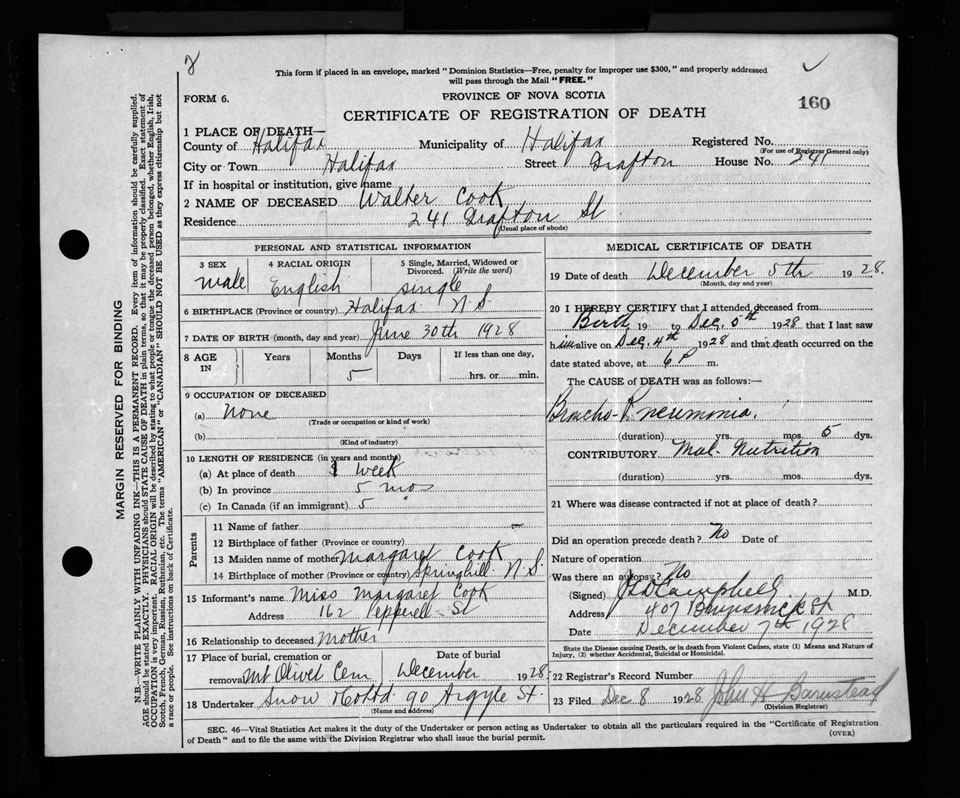 8
This form if placed in an envelope, marked "Dominion Statistics—Free, penalty for improper use $300," and properly addressed
will pass through the Mail "FREE."
FORM 6.
PROVINCE OF NOVA SCOTIA
160
CERTIFICATE OF REGISTRATION OF DEATH
1 PLACE OF DEATH—
County of Halifax Municipality of Halifax Registered No.
(For use of Registrar General only)
City or Town Halifax Street Grafton House No. 241
If in hospital or institution, give name
2 NAME OF DECEASED Walter Cook
Residence 241 Grafton St
(Usual place of abode)
PERSONAL AND STATISTICAL INFORMATION
3 SEX
male
4 RACIAL ORIGIN
English
5 Single, Married, Widowed or
Divorced. (Write the word)
single
6 BIRTHPLACE (Province or country) Halifax N S
7 DATE OF BIRTH (month, day and year) June 30th 1928
8 AGE
IN
Years
Months
5
Days
If less than one day,
hrs. or min.
9 OCCUPATION OF DECEASED
(a) None
(Trade or occupation or kind of work)
(b)
(Kind of industry)
10 LENGTH OF RESIDENCE (in years and months)
(a) At place of death 1 week
(b) In province 5 mos
(c) In Canada (if an immigrant) 5
Parents
11 Name of father
12 Birthplace of father (Province or country)
13 Maiden name of mother Margaret Cook
14 Birthplace of mother (Province or country) Springhill N.S.
15 Informant's name Miss Margaret Cook
Address 162 Pepperell St
16 Relationship to deceased mother
17 Place of burial, cremation or
removal Mt Olivet Cem
Date of burial
December 1928
18 Undertaker Snow Co Ltd 90 Argyle St.
(Name and address)
MEDICAL CERTIFICATE OF DEATH
19 Date of death December 5th 1928.
(Month, day and year)
20 I HEREBY CERTIFY that I attended deceased from
Birth 19 to Dec. 5th 1928, that I last saw
him alive on Dec. 4th 1928 and that death occurred on the
date stated above, at 6 P m.
The CAUSE of DEATH was as follows:—
Broncho-Pneumonia.
(duration) yrs. mos. 5 dys.
CONTRIBUTORY Mal-Nutrition
(duration) yrs. mos. dys.
21 Where was disease contracted if not at place of death?
Did an operation precede death? No Date of
Nature of operation
Was there an autopsy? No
(Signed) Campbell M.D.
Address 407 Brunswick St
Date December 7th 1928
State the Disease causing Death, or in death from Violent Causes, state (1) Means and Nature of
Injury, (2) whether Accidental, Suicidal or Homicidal.
22 Registrar's Record Number
23 Filed Dec 8 1928 John H Barnstead
(Division Registrar)
SEC. 46—Vital Statistics Act makes it the duty of the Undertaker or person acting as Undertaker to obtain all the particulars required in the "Certificate of Registration
of Death" and to file the same with the Division Registrar who shall issue the burial permit.
(OVER)
MARGIN RESERVED FOR BINDING
N.B.—WRITE PLAINLY WITH UNFADING INK—THIS IS A PERMANENT RECORD. Every item of information should be carefully supplied.
AGE should be stated EXACTLY. PHYSICIANS should STATE CAUSE OF DEATH in plain terms, so that it may be properly classified. Exact statement of
OCCUPATION is very important. RACIAL ORIGIN will be described by stating to what people or tongue the deceased person belonged, whether English, Irish,
Scotch, French, German, Russian, Ruthenian, etc. The terms "AMERICAN" or "CANADIAN" SHOULD NOT BE USED as they express citizenship but not
a race or people. See instructions on back of Certificate.